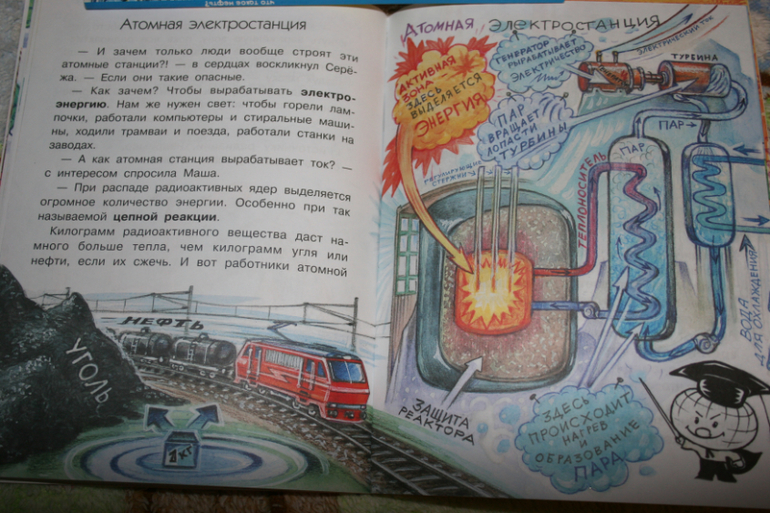 Атомная электростанция
— И зачем только люди вообще строят эти
атомные станции?! — в сердцах воскликнул Серё-
жа. — Если они такие опасные.
— Как зачем? Чтобы вырабатывать электро-
энергию. Нам же нужен свет: чтобы горели лам-
почки, работали компьютеры и стиральные маши-
ны, ходили трамваи и поезда, работали станки на
заводах.
— А как атомная станция вырабатывает ток? —
с интересом спросила Маша.
— При распаде радиоактивных ядер выделяется
огромное количество энергии. Особенно при так
называемой цепной реакции.
Килограмм радиоактивного вещества даст на-
много больше тепла, чем килограмм угля или
нефти, если их сжечь. И вот работники атомной
НЕФТЬ
УГОЛЬ
1 кг
АТОМНАЯ ЭЛЕКТРОСТАНЦИЯ
АКТИВНАЯ
ЗОНА
ЗДЕСЬ
ВЫДЕЛЯЕТСЯ
ЭНЕРГИЯ
ГЕНЕРАТОР
ВЫРАБАТЫВАЕТ
ЭЛЕКТРИЧЕСТВО
ЭЛЕКТРИЧЕСКИЙ ТОК
ТУРБИНА
ПАР
ВРАЩАЕТ
ЛОПАСТИ
ТУРБИНЫ
РЕГУЛИРУЮЩИЕ
СТЕРЖНИ
ТЕПЛОНОСИТЕЛЬ
ПАР
ПАР
ВОДА
ДЛЯ ОХЛАЖДЕНИЯ
ЗАЩИТА
РЕАКТОРА
ЗДЕСЬ
ПРОИСХОДИТ
НАГРЕВ
И
ОБРАЗОВАНИЕ
ПАРА